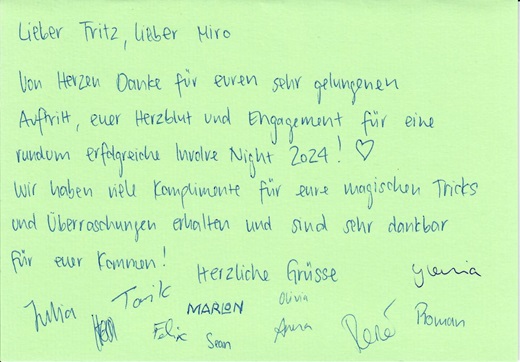 Lieber Fritz, lieber Miro
Von Herzen Danke für euren sehr gelungenen
Auftritt, euer Herzblut und Engagement für eine
rundum erfolgreiche Involve Night 2024! ♡
Wir haben viele Komplimente für eure magischen Tricks
und Überraschungen erhalten und sind sehr dankbar
für euer Kommen!
Herzliche Grüsse
Julia Tarik MARLON Olivia
Felix Sean Anna René Roman